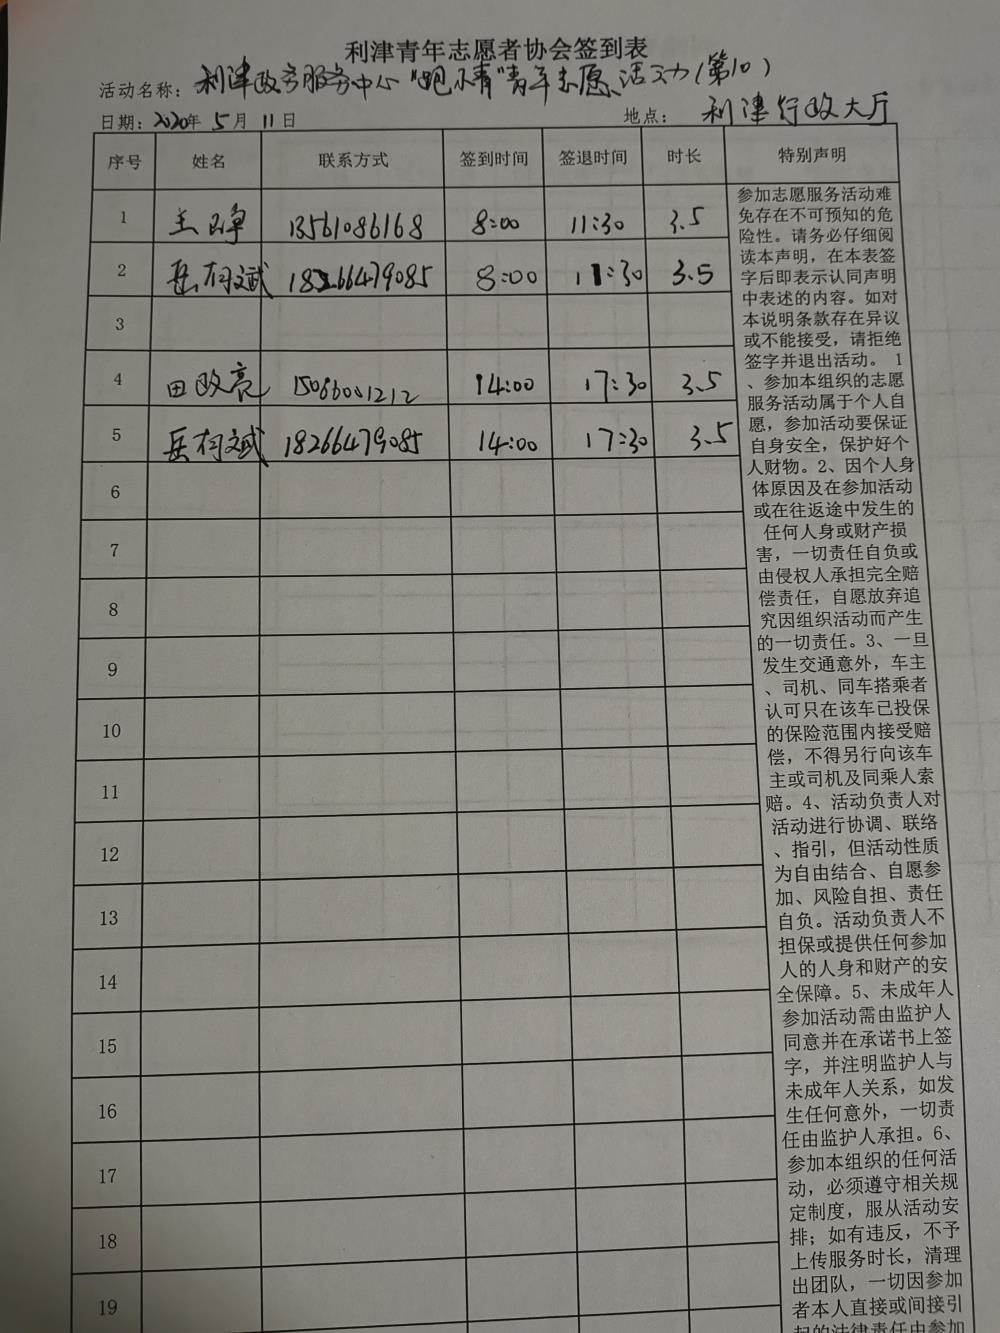 利津青年志愿者协会签到表
活动名称：利津政务服务中心“跑小青”青年志愿活动（第10）
日期：2020年5月11日 地点：利津行政大厅
序号 姓名 联系方式 签到时间 签退时间 时长 特别声明
1 13561086168 8:00 11:30 3.5
2 岳柯斌 18266479085 8:00 11:30 3.5
3
4 田政亮 15066001212 14:00 17:30 3.5
5 岳柯斌 18266479085 14:00 17:30 3.5
6
7
8
9
10
11
12
13
14
15
16
17
18
19
参加志愿服务活动难
免存在不可预知的危
险性。请务必仔细阅
读本声明，在本表签
字后即表示认同声明
中表述的内容。如对
本说明条款存在异议
或不能接受，请拒绝
签字并退出活动。 1
、参加本组织的志愿
服务活动属于个人自
愿，参加活动要保证
自身安全，保护好个
人财物。2、因个人身
体原因及在参加活动
或在往返途中发生的
任何人身或财产损
害，一切责任自负或
由侵权人承担完全赔
偿责任，自愿放弃追
究因组织活动而产生
的一切责任。3、一旦
发生交通意外，车主
、司机、同车搭乘者
认可只在该车已投保
的保险范围内接受赔
偿，不得另行向该车
主或司机及同乘人索
赔。4、活动负责人对
活动进行协调、联络
、指引，但活动性质
为自由结合、自愿参
加、风险自担、责任
自负。活动负责人不
担保或提供任何参加
人的人身和财产的安
全保障。5、未成年人
参加活动需由监护人
同意并在承诺书上签
字，并注明监护人与
未成年人关系，如发
生任何意外，一切责
任由监护人承担。6、
参加本组织的任何活
动，必须遵守相关规
定制度，服从活动安
排；如有违反，不予
上传服务时长，清理
出团队，一切因参加
者本人直接或间接引
起的法律责任由参加